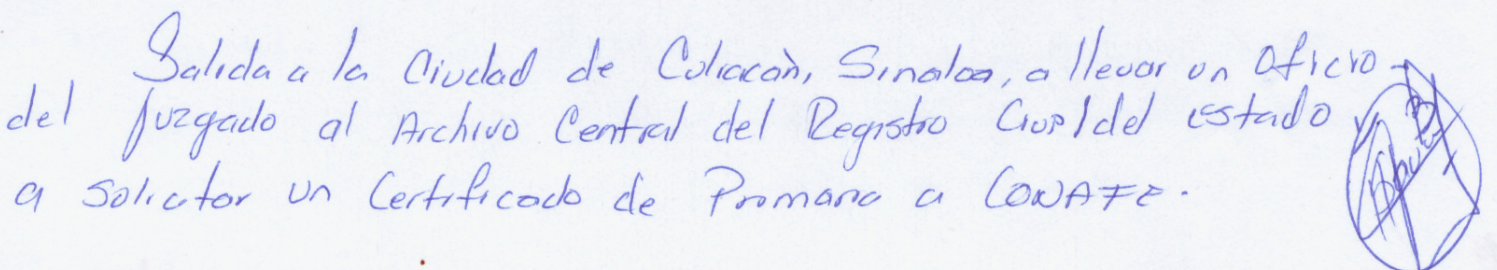 Salida a la Ciudad de Culiacán, Sinaloa, a llevar un Oficio
del Juzgado al Archivo Central del Registro Civil del Estado y
a solicitar un Certificado de Primaria a CONAFE.